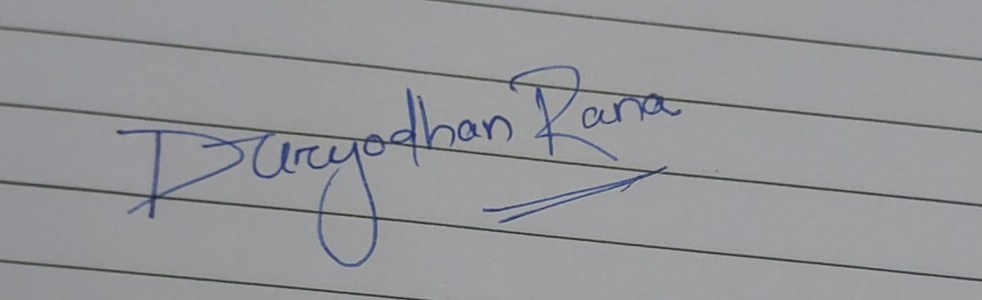 Duryodhan Rana